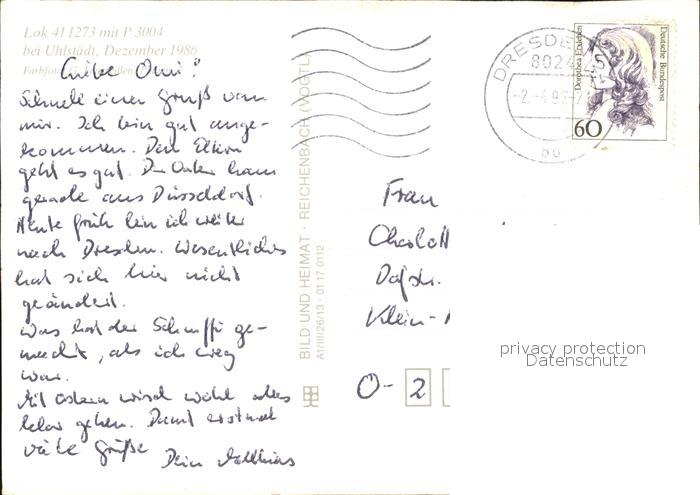 Lok 41 1273 mit P 3004
bei Uhlstädt, Dezember 1986
Liebe Omi!
Schnell einen Gruß von
mir. Ich bin gut ange-
kommen. Den Eltern
geht es gut. Der Vater kam
gerade aus Düsseldorf.
Heute früh bin ich weiter
nach Dresden. Wesentliches
hat sich hier nicht
geändert.
Was hat der Schnuffi ge-
macht, als ich weg
war.
Mit Ostern wird wohl alles
klar gehen. Damit erstmal
viele Grüße
Dein Matthias
BILD UND HEIMAT · REICHENBACH (VOGTL)
A1/III/26/13 · 01 17 0112
DRESDEN
8024
Dorothea Erxleben
Deutsche Bundespost
60
Frau
Charlott
Dofstr.
Klein-
O-2
privacy protection
Datenschutz